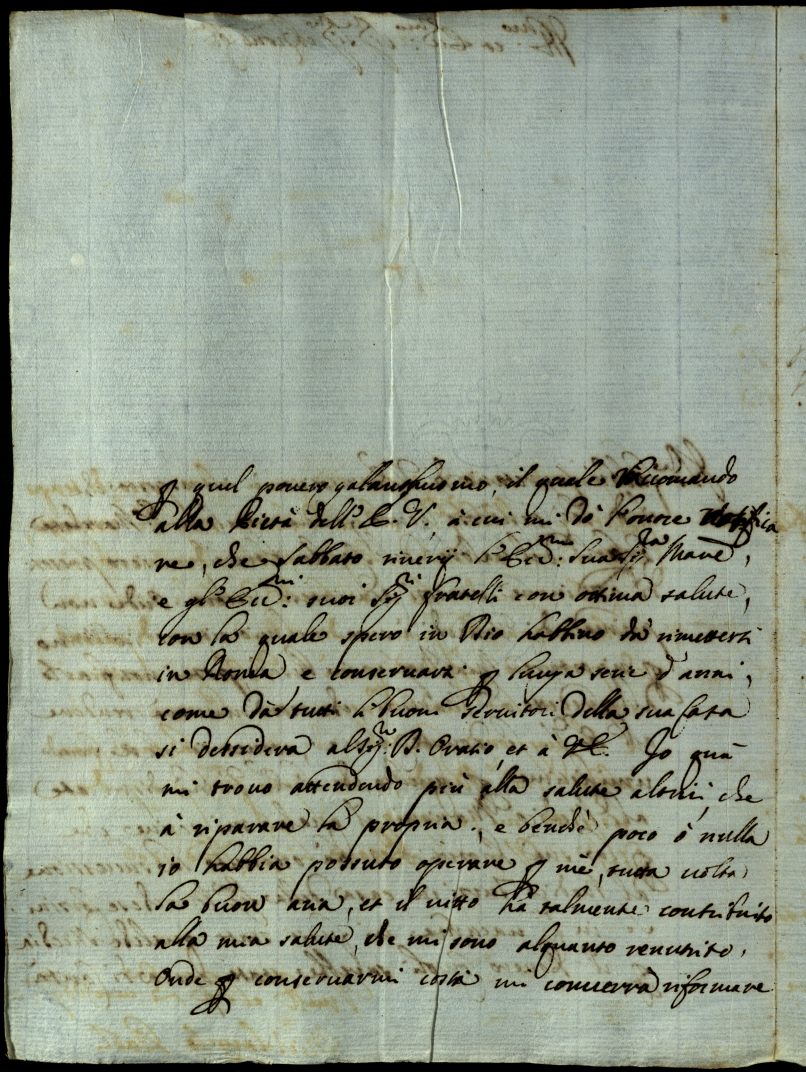 p quel povero galanthuomo, il quale Ricomando
alla Pietà dell' E. V., à cui mi dò l'onore
re, che sabbato riverij l'Ecc.ma: sua Sig.ra Madre,
e gl' Ecc.mi: suoi Sig.ri fratelli con ottima salute,
con la quale spero in Dio habbino dà rimettersi
in Roma, e conservarsi p lunga serie d'anni,
come dà tutti li buoni servitori della sua Casa
si desidera al Sig.re D. Oratio, et à V.E. Io quà
mi trovo attendendo più alla salute altrui, che
à riparare la propria, e benche poco ò nulla
io habbia possuto operare p mè, tutta volta
la buon aria, et il vitto hà talmente contribuito
alla mia salute, che mi sono alquanto renutrito,
onde p conservarmi costà mi converrà riformare